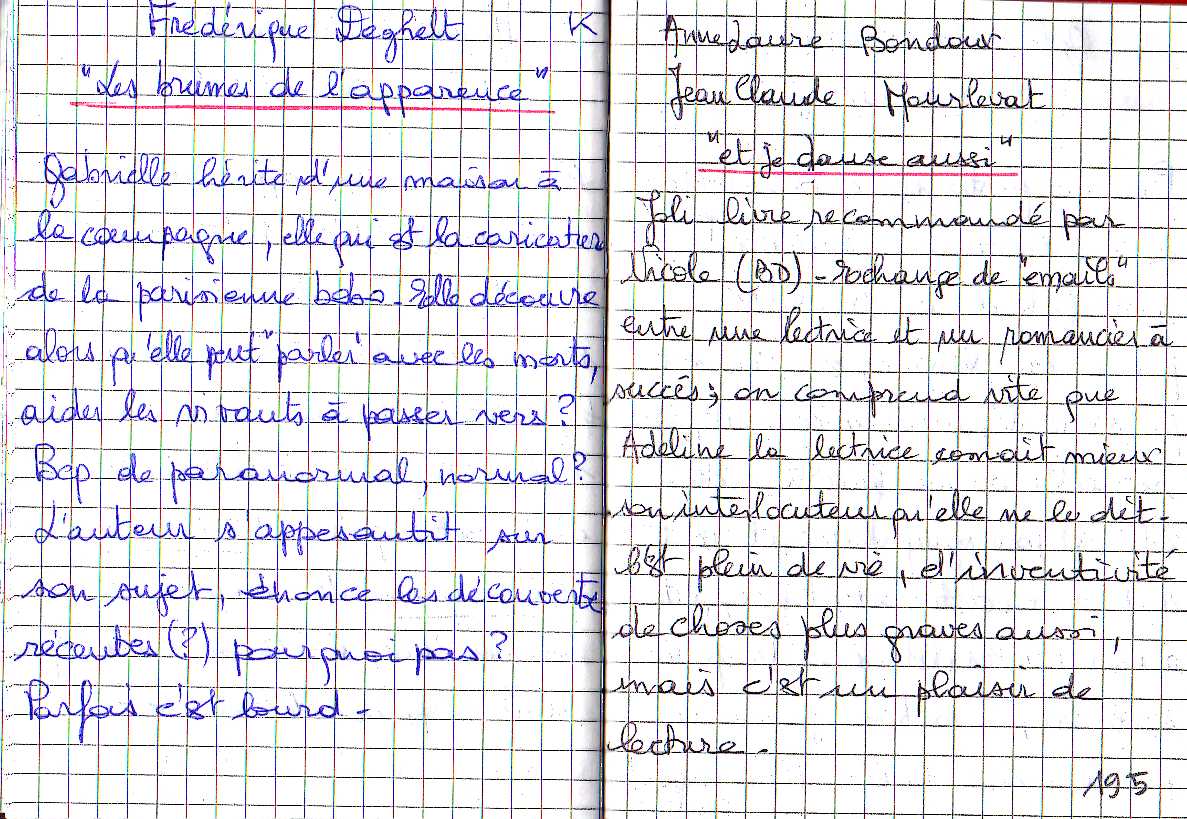 Frédérique Deghelt K
"Les brumes de l'apparence"
Gabrielle hérite d'une maison à
la campagne, elle qui est la caricature
de la parisienne bobo - Elle découvre
alors qu'elle peut "parler" avec les morts,
aider les vivants à passer vers ?
Bcp de paranormal, normal ?
L'auteur s'appesantit sur
son sujet, énonce les découvertes
récentes (?) pourquoi pas ?
Parfois c'est lourd -
Anne Laure Bondoux
Jean Claude Mourlevat
"et je danse aussi"
Joli livre recommandé par
Nicole (BD) - Echange de "emails"
entre une lectrice et un romancier à
succés ; on comprend vite que
Adeline la lectrice connait mieux
son interlocuteur qu'elle ne le dit -
C'est plein de vie, d'inventivité
de choses plus graves aussi,
mais c'est un plaisir de
lecture -
195